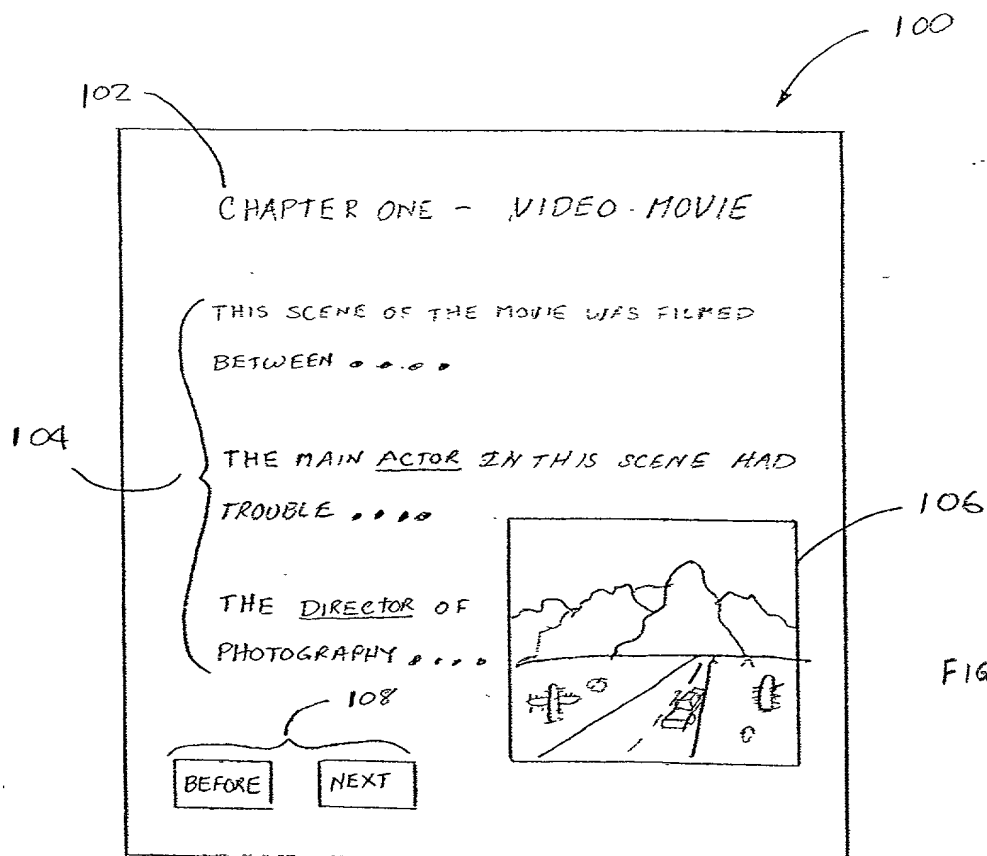 100
102
CHAPTER ONE - VIDEO-MOVIE
THIS SCENE OF THE MOVIE WAS FILMED
BETWEEN .....
104
THE MAIN ACTOR IN THIS SCENE HAD
TROUBLE ....
106
THE DIRECTOR OF
PHOTOGRAPHY ....
FIG
108
BEFORE NEXT